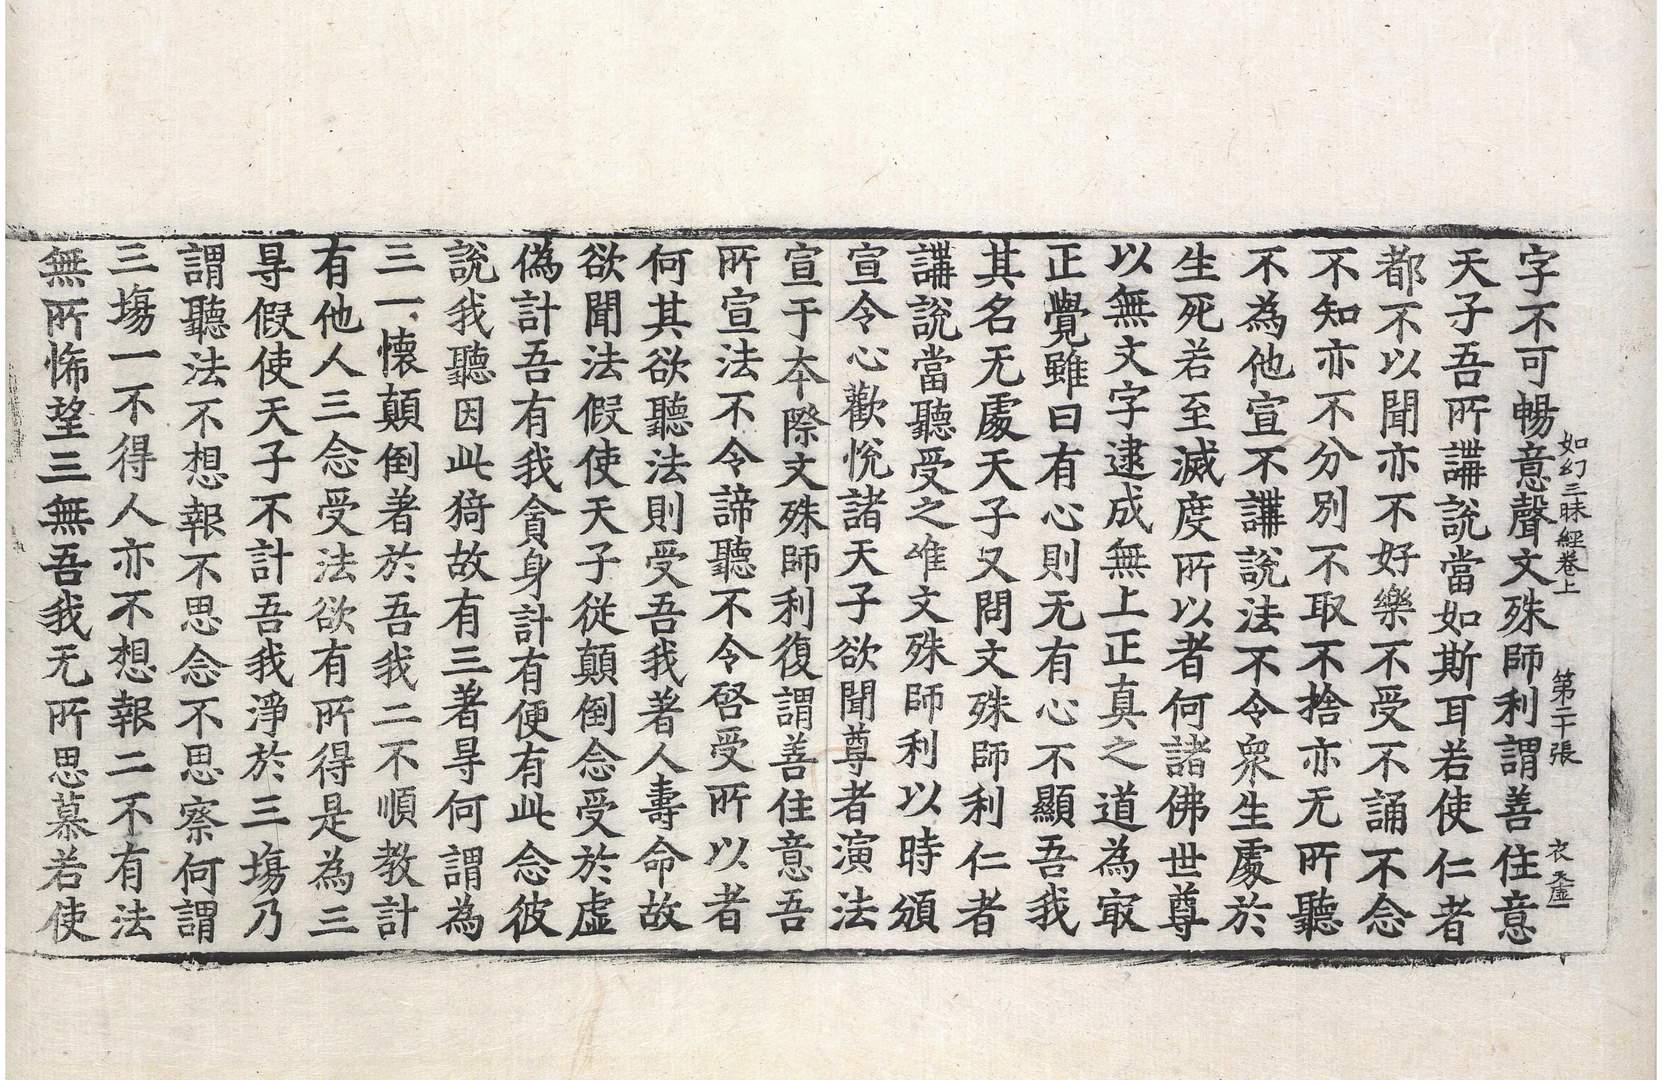 如幻三昧經卷上 第二十張 衣 天虛
字不可暢意聲文殊師利謂善住意
天子吾所講說當如斯耳若使仁者
都不以聞亦不好樂不受不誦不念
不知亦不分別不取不捨亦无所聽
不為他宣不講說法不令衆生處於
生死若至滅度所以者何諸佛世尊
以無文字逮成無上正真之道為㝡
正覺雖曰有心則无有心不顯吾我
其名无處天子又問文殊師利仁者
講說當聽受之唯文殊師利以時頒
宣令心歡悅諸天子欲聞尊者演法
宣于本際文殊師利復謂善住意吾
所宣法不令諦聽不令啓受所以者
何其欲聽法則受吾我著人壽命故
欲聞法假使天子從顛倒念受於虛
偽計吾有我貪身計有便有此念彼
說我聽因此猗故有三著㝵何謂為
三一懷顛倒著於吾我二不順教計
有他人三念受法欲有所得是為三
㝵假使天子不計吾我淨於三塲乃
謂聽法不想報不思念不思察何謂
三塲一不得人亦不想報二不有法
無所悕望三無吾我无所思慕若使